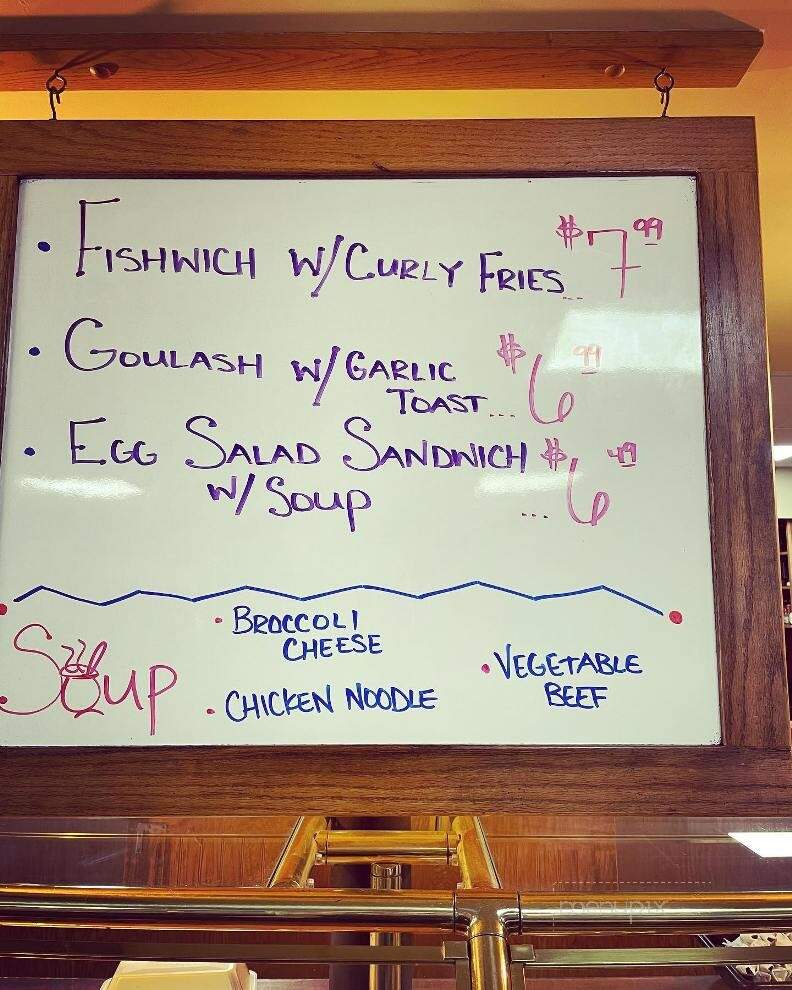 • FISHWICH W/CURLY FRIES... $7.99
• GOULASH W/GARLIC
TOAST... $6.99
• EGG SALAD SANDWICH
W/SOUP ... $6.49
SOUP
• BROCCOLI
CHEESE
• CHICKEN NOODLE
• VEGETABLE
BEEF
menupix